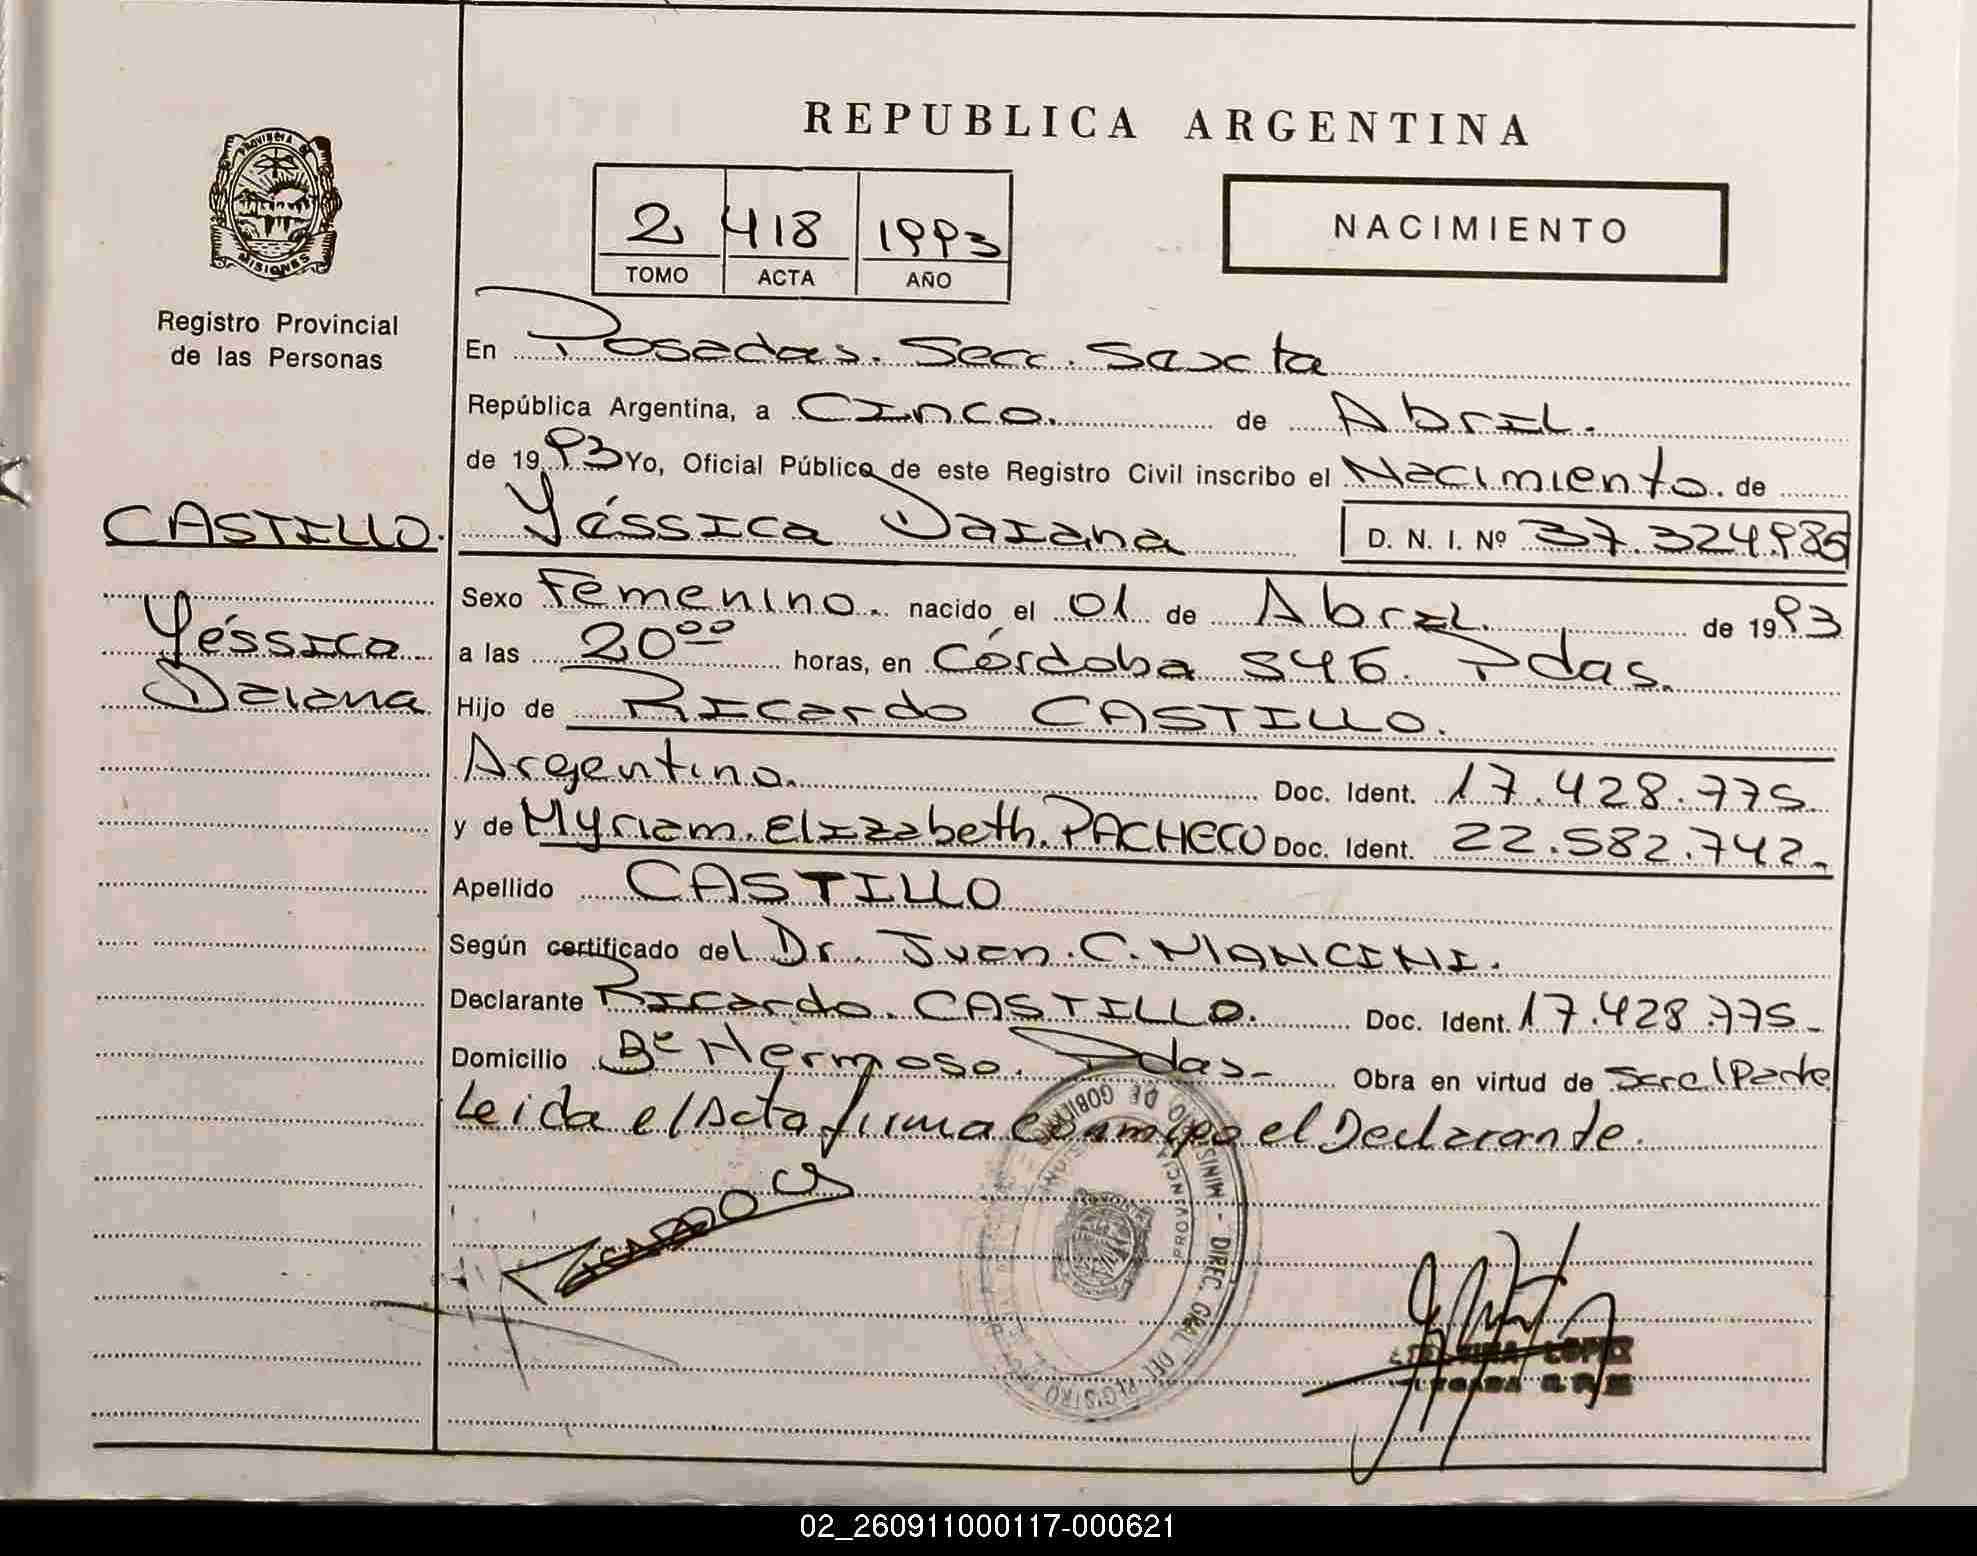 REPUBLICA ARGENTINA
PROVINCIA DE
MISIONES
2 418 1993
TOMO ACTA AÑO
NACIMIENTO
Registro Provincial
de las Personas
En Posadas. Secc. Sexta
República Argentina, a Cinco. de Abril.
de 1993 Yo, Oficial Público de este Registro Civil inscribo el Nacimiento. de
CASTILLO. Yéssica Daiana D. N. I. Nº 37.324.985
Sexo Femenino. nacido el 01 de Abril. de 1993
Yéssica
a las 20⁰⁰ horas, en Córdoba 546. Pdas.
Daiana
Hijo de Ricardo CASTILLO.
Argentino. Doc. Ident. 17.428.775
y de Myriam Elizabeth. PACHECO Doc. Ident. 22.582.742.
Apellido CASTILLO
Según certificado del Dr. Juan C. MANCINI.
Declarante Ricardo. CASTILLO. Doc. Ident. 17.428.775
Domicilio Bº Hermoso. Pdas. Obra en virtud de Ser el Parte
Leida el Acta firma conmigo el Declarante.
MINISTERIO DE GOBIERNO - DIREC. GRAL. DEL REGISTRO
PROVINCIA
LOPEZ
02_260911000117-000621